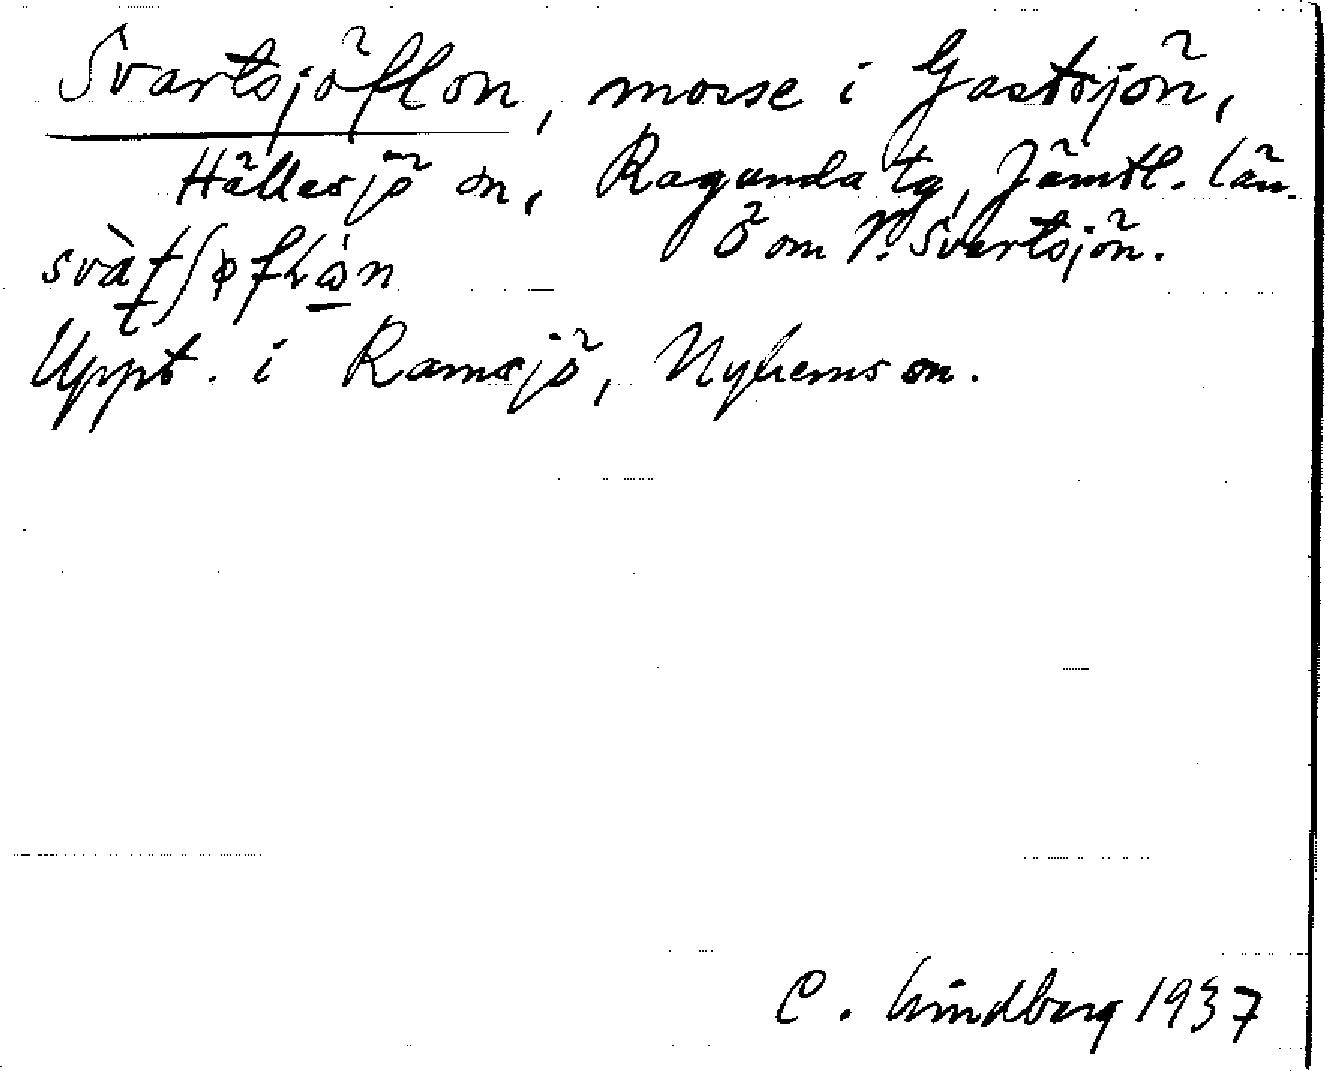 Svartsjöflon, mosse i Gastsjön,
Hällesjö sn, Ragunda tg, Jämtl. län
Ö om V. Svartsjön.
Uppt. i Ramsjö, Nyhems sn.
C. Lindberg 1937